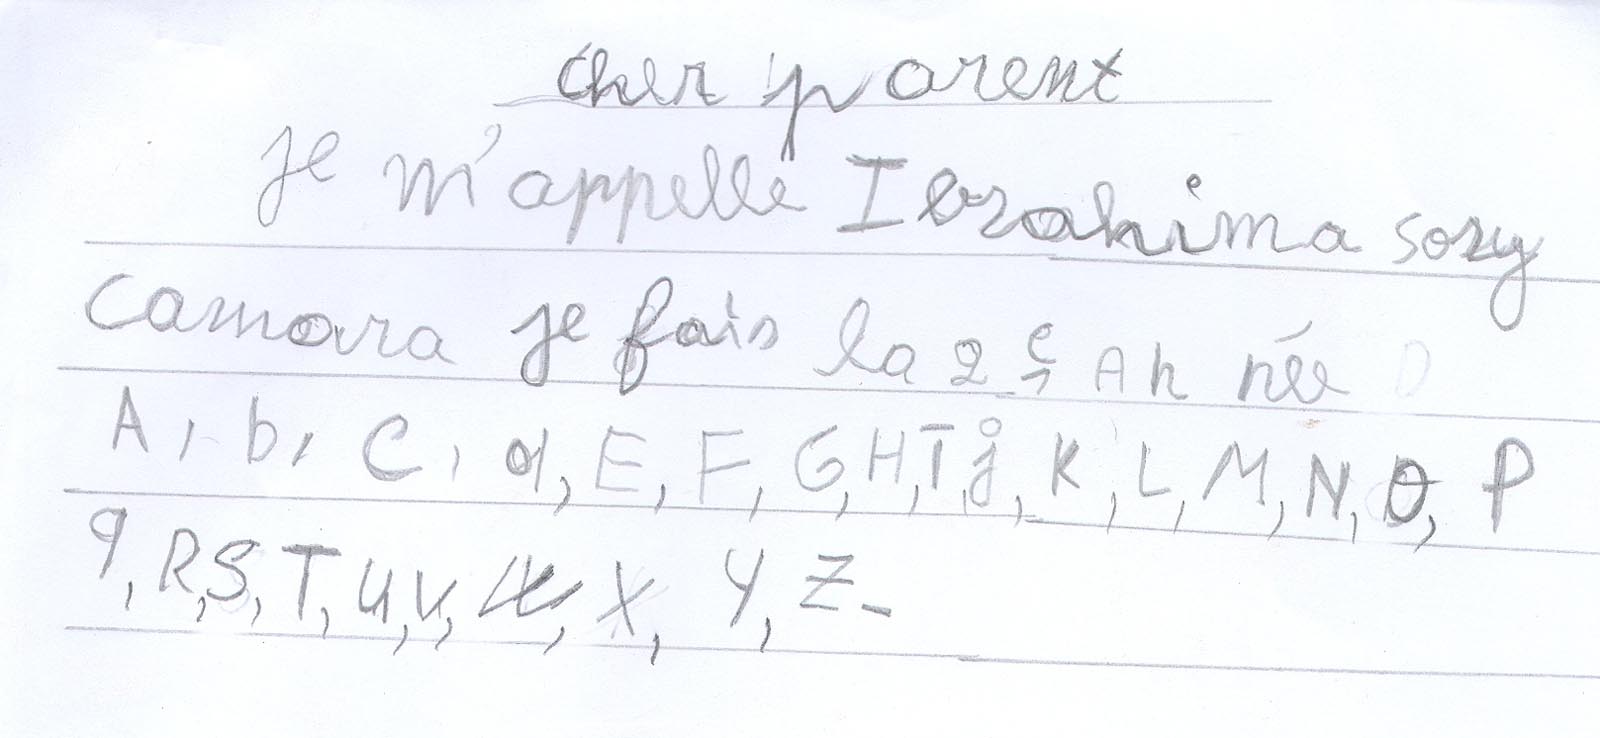 cher parent
je m'appelle Ibrahima sory
camara je fais la 2e Ah née
A, b, C, d, E, F, G, H, I, j, K, L, M, N, O, P
q, R, S, T, U, V, W, X, Y, Z-